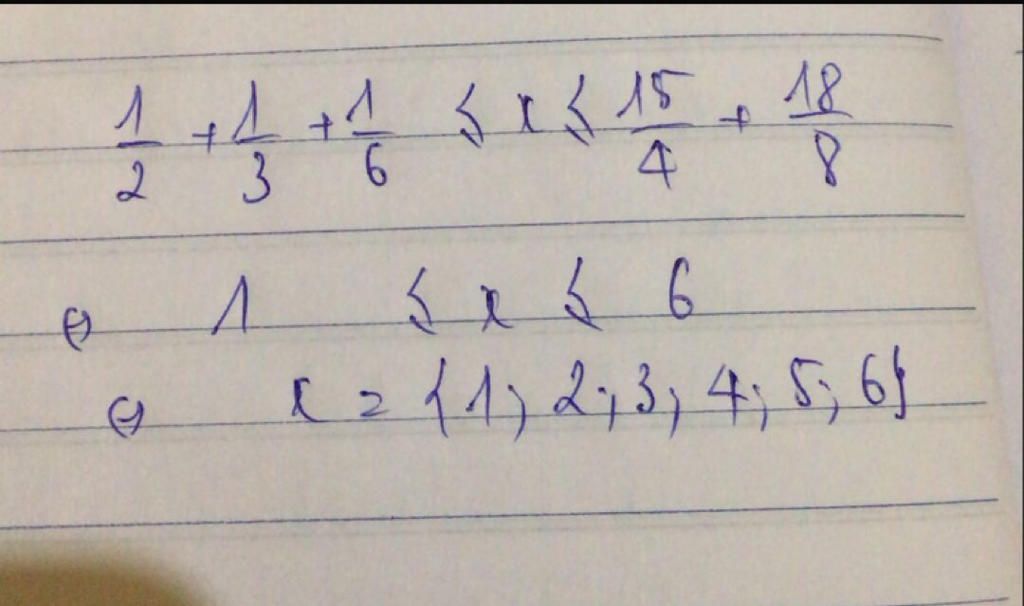 1/2 + 1/3 + 1/6 ≤ x ≤ 15/4 + 18/8
⇔ 1 ≤ x ≤ 6
⇔ x = {1; 2; 3; 4; 5; 6}